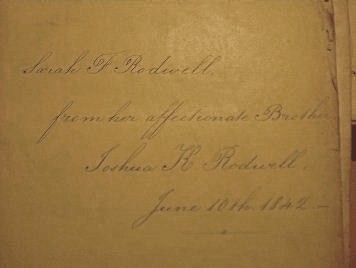 Sarah F Rodwell,
from her affectionate Brother
Joshua K. Rodwell.
June 10th 1842 –